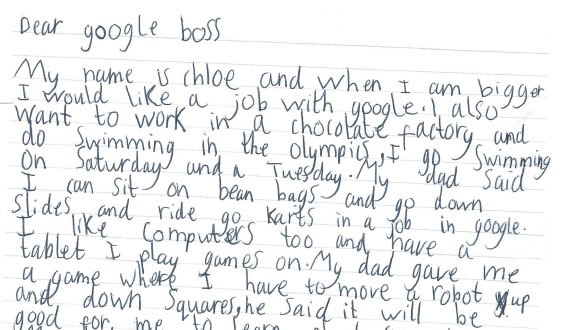 Dear google boss
My name is chloe and when I am bigger
I would like a job with google. I also
want to work in a chocolate factory and
do swimming in the olympics, I go swimming
on Saturday and a Tuesday. My dad said
I can sit on bean bags and go down
slides and ride go karts in a job in google.
I like computers too and have a
tablet I play games on. My dad gave me
a game where I have to move a robot up
and down squares, he said it will be
good for me to learn